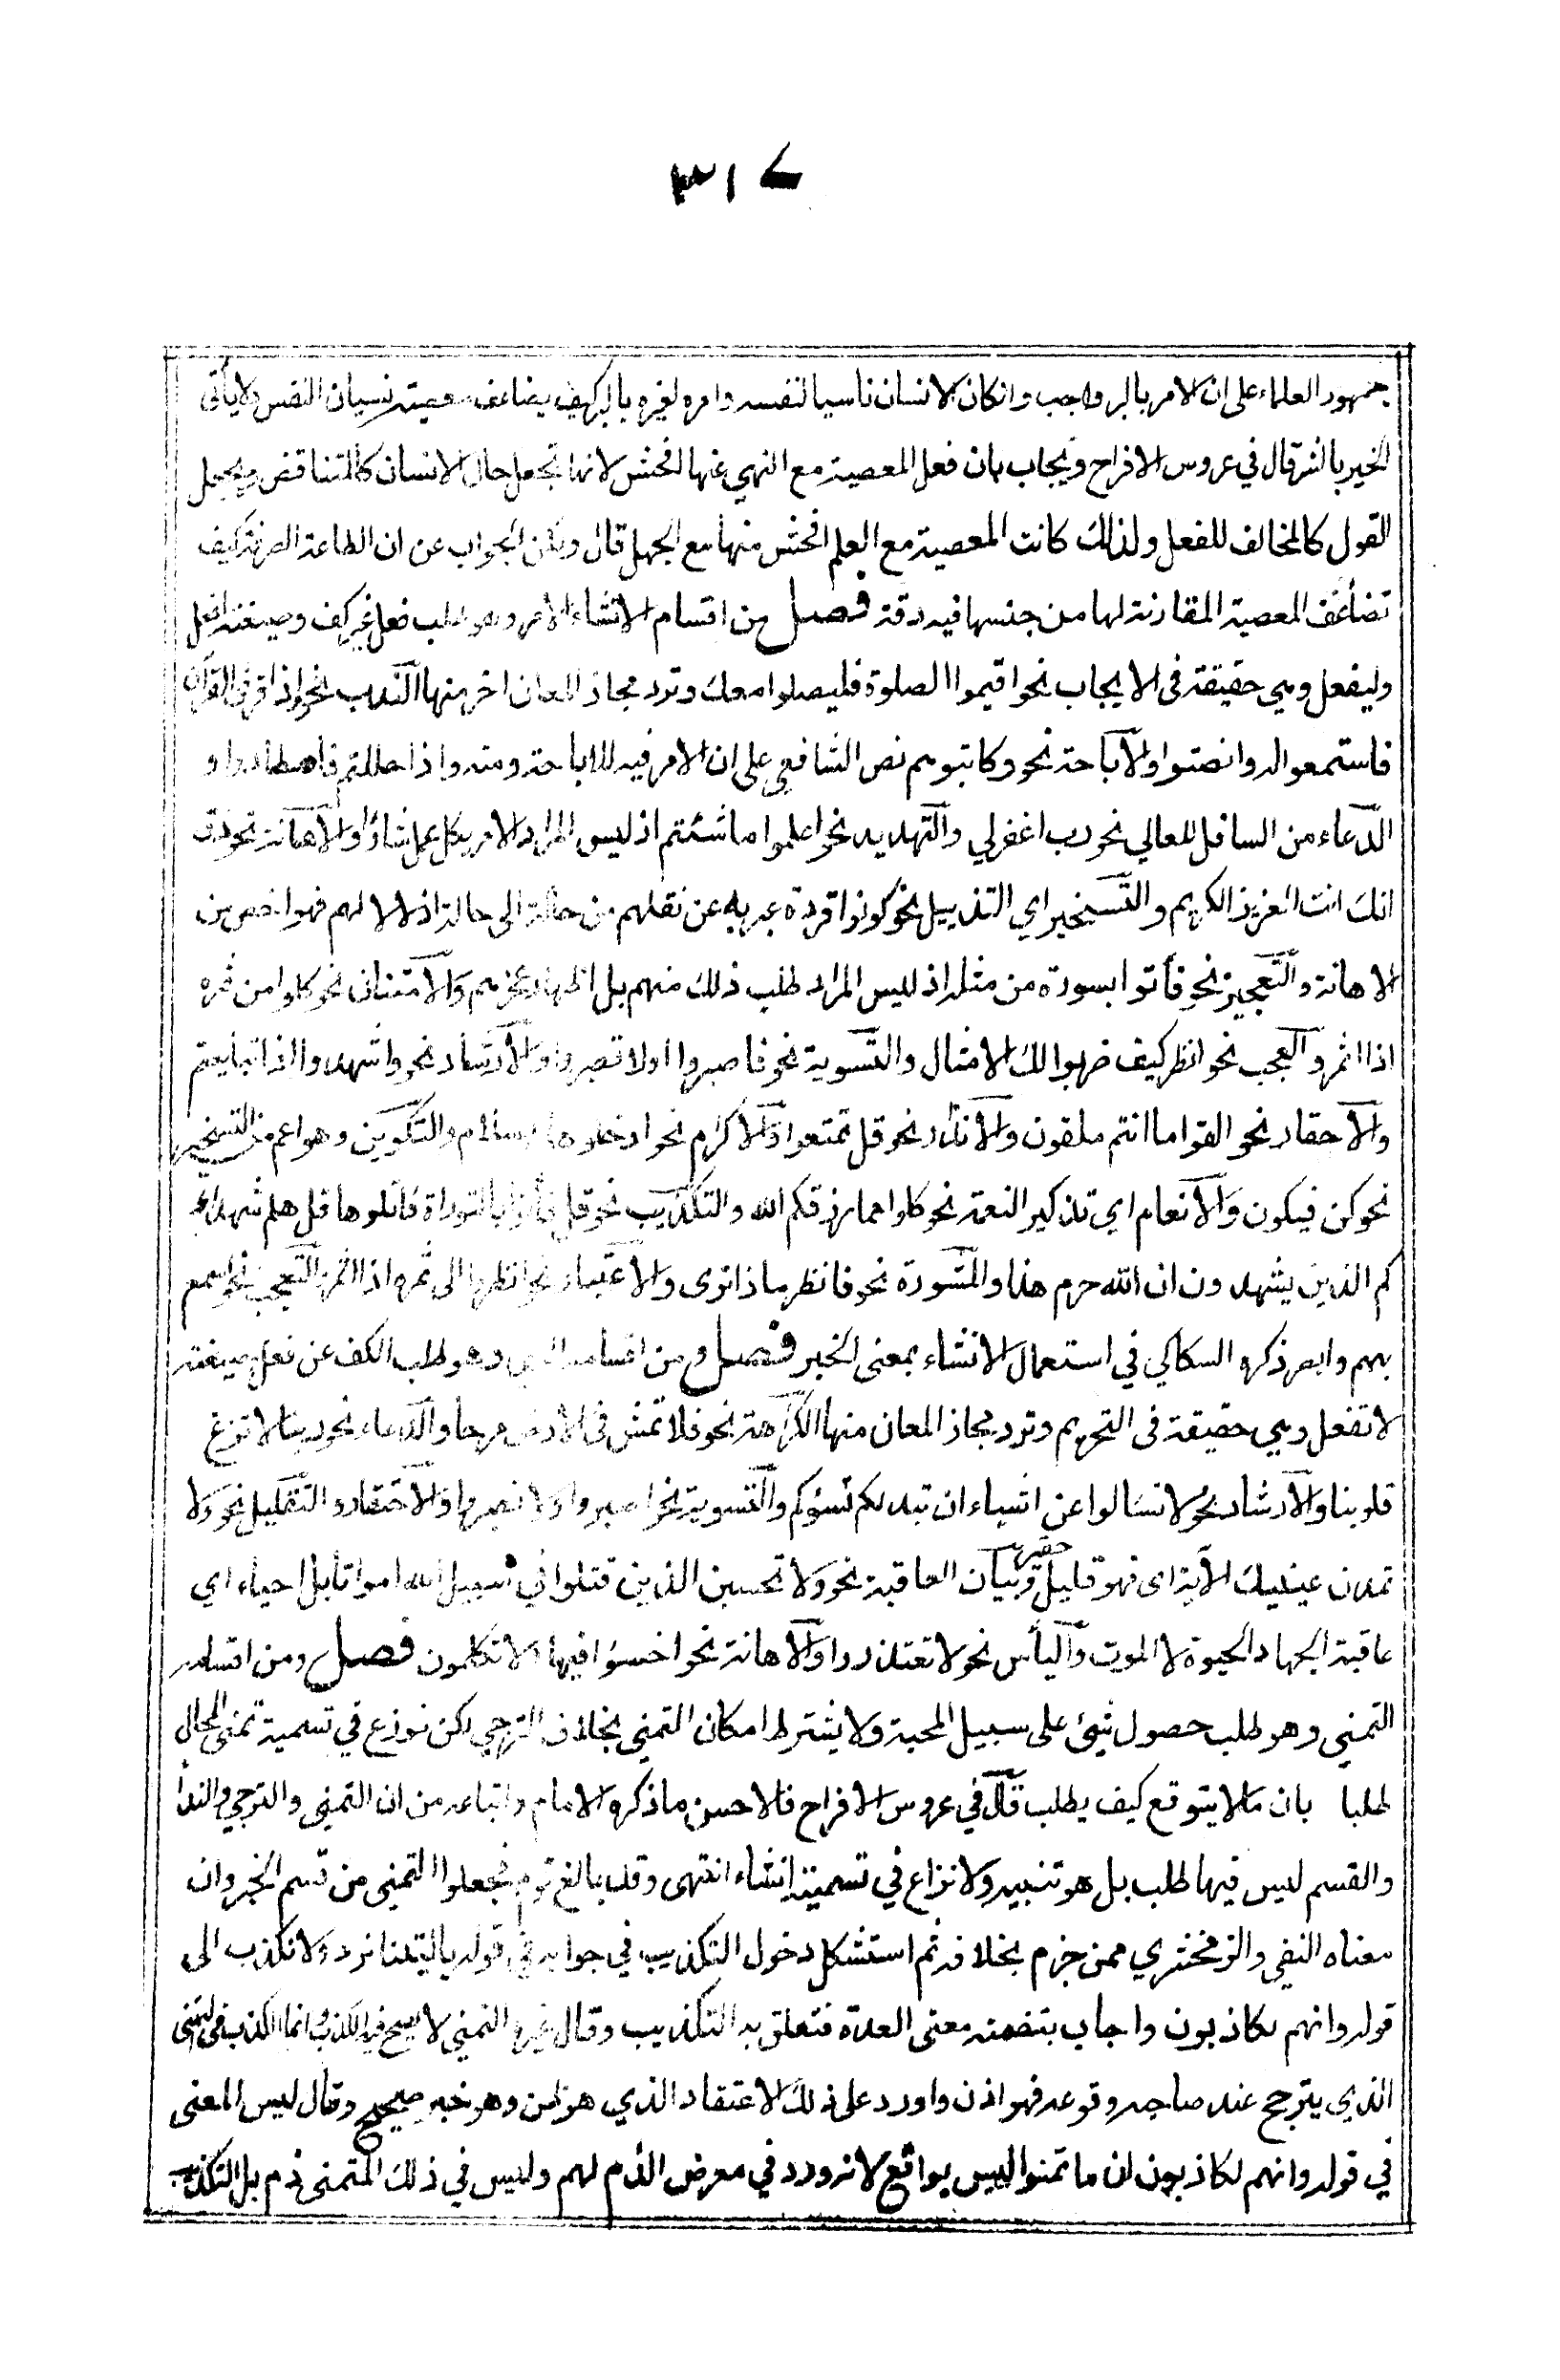 ٣١٧
جمهور العلماء على ان الامر بالبر واجب وان كان الانسان ناسيا لنفسه وامره لغيره بالبر كيف يضاعف معصية نسيان النفس ولا يأتى
الخير بالشر قال في عروس الافراح ويجاب بان فعل المعصية مع النهي عنها افحش لانها تجعل حال الانسان كالمتناقض ويجعل
القول كالمخالف للفعل ولذلك كانت المعصية مع العلم افحش منها مع الجهل قال ولكن الجواب عن ان الطاعة الصرفة كيف
تضاعف المعصية المقارنة لها من جنسها فيه دقة فصل من اقسام الانشاء الامر وهو طلب فعل غير كف وصيغته افعل
وليفعل وهي حقيقة فى الايجاب نحو اقيموا الصلوة فليصلوا معك وترد مجازا لمعان اخر منها الندب نحو واذا قرئ القرآن
فاستمعوا له وانصتوا والاباحة نحو وكاتبوهم نص الشافعي على ان الامر فيه للاباحة ومنه واذا حللتم فاصطادوا و
الدعاء من السافل للعالي نحو رب اغفرلي والتهديد نحو اعملوا ما شئتم اذ ليس المراد الامر بكل عمل شاؤا والاهانة نحو ذق
انك انت العزيز الكريم والتسخير اي التذليل نحو كونوا قردة عبر به عن نقلهم من حالة الى حالة اذلالا لهم فهو اخص من
الاهانة والتعجيز نحو فأتوا بسورة من مثله اذ ليس المراد طلب ذلك منهم بل اظهار عجزهم والامتنان نحو كلوا من ثمره
اذا اثمر والعجب نحو انظر كيف ضربوا لك الامثال والتسوية نحو فاصبروا اولا تصبروا والارشاد نحو واشهدوا اذا تبايعتم
والاحتقار نحو القوا ما انتم ملقون والانذار نحو قل تمتعوا والاكرام نحو ادخلوها بسلام والتكوين وهو اعم من التسخير
نحو كن فيكون والانعام اي تذكير النعمة نحو كلوا مما رزقكم الله والتكذيب نحو قل فأتوا بالتوراة فاتلوها قل هلم شهداء
كم الذين يشهدون ان الله حرم هذا والمشورة نحو فانظر ماذا ترى والاعتبار نحو انظروا الى ثمره اذا اثمر والتعجب نحو اسمع
بهم وابصر ذكره السكاكي في استعمال الانشاء بمعنى الخبر فصل ومن اقسامه النهي وهو طلب الكف عن فعل وصيغته
لا تفعل وهي حقيقة فى التحريم وترد مجازا لمعان منها الكراهة نحو فلا تمش فى الارض مرحا والدعاء نحو ربنا لا تزغ
قلوبنا والارشاد نحو لا تسالوا عن اشياء ان تبد لكم تسؤكم والتسوية نحو اصبروا اولا تصبروا والاحتقار والتقليل نحو ولا
تمدن عينيك الآية اى فهو قليل حقير وبيان العاقبة نحو ولا تحسبن الذين قتلوا في سبيل الله امواتا بل احياء اي
عاقبة الجهاد الحيوة لا الموت واليأس نحو لا تعتذروا والاهانة نحو اخسؤا فيها ولا تكلمون فصل ومن اقسامه
التمني وهو طلب حصول شيئ على سبيل المحبة ولا يشترط امكان التمني بخلاف الترجي لكن نوزع في تسمية تمنى المحال
طلبا بان ما لا يتوقع كيف يطلب قال في عروس الافراح فالاحسن ما ذكره الامام واتباعه من ان التمني والترجي والندا
والقسم ليس فيها طلب بل هو تنبيه ولا نزاع في تسميته انشاء انتهى وقد بالغ قوم فجعلوا التمنى من قسم الخبر وان
معناه النفى والزمخشري ممن جزم بخلافه ثم استشكل دخول التكذيب في جوابه في قوله يا ليتنا نرد ولا نكذب الى
قوله وانهم لكاذبون واجاب بتضمنه معنى العدة فتعلق به التكذيب وقال غيره التمني لا يصح فيه الكذب وانما الكذب فى المتمنى
الذي يترجح عند صاحبه وقوعه فهو اذن وارد على ذلك الاعتقاد الذي هو ظن وهو خبر صحيح وقال ليس المعنى
في قوله وانهم لكاذبون ان ما تمنوا ليس بواقع لانه ورد في معرض الذم لهم وليس في ذلك المتمنى ذم بل التكذيب